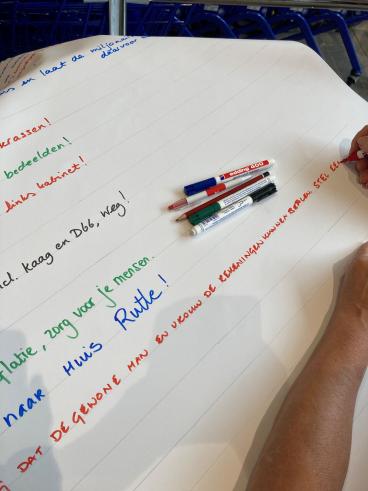 en laat de
krassen!
bedeelden!
links kabinet!
kaag en D66, weg!
flatie, zorg voor je mensen.
naar Huis Rutte!
DAT DE GEWONE MAN EN VROUW DE REKENINGEN KUNNEN BETALEN STEL
edding 660